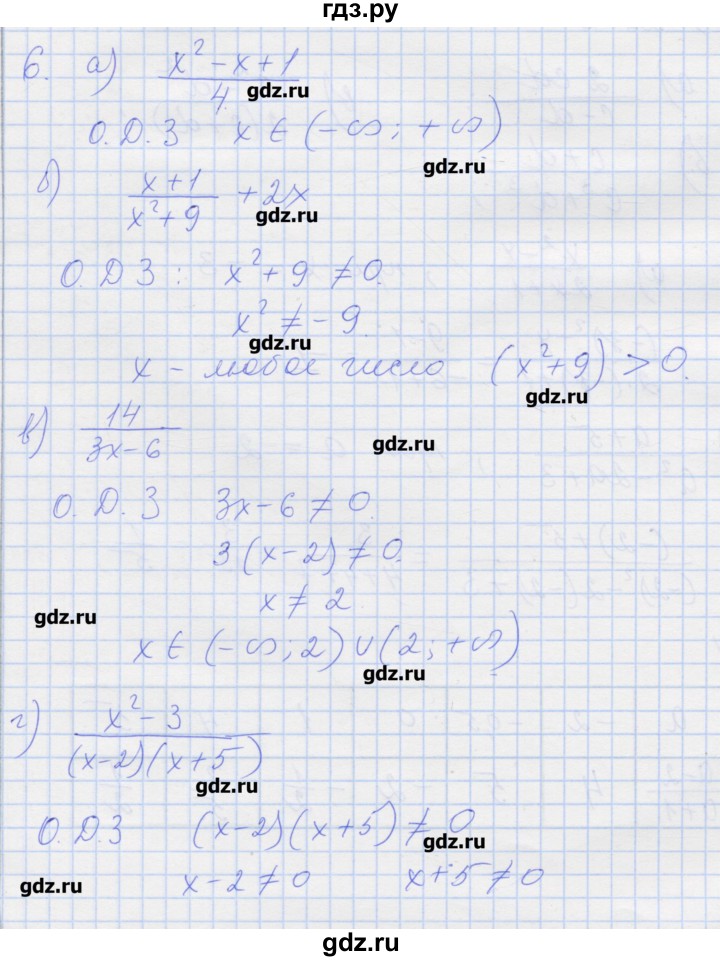 гдз.ру
6. а) (x² - x + 1)/4
gdz.ru
О.Д.З x ∈ (-∞; +∞)
gdz.ru
б) (x+1)/(x²+9) + 2x
gdz.ru
О.ДЗ: x² + 9 ≠ 0.
x² ≠ -9.
gdz.ru
x - любое число (x²+9) > 0.
gdz.ru
в) 14/(3x-6)
gdz.ru
О.Д.З 3x-6 ≠ 0.
3(x-2) ≠ 0.
x ≠ 2.
gdz.ru
x ∈ (-∞; 2) ∪ (2; +∞)
gdz.ru
г) (x²-3)/((x-2)(x+5))
gdz.ru
О.Д.З (x-2)(x+5) ≠ 0
gdz.ru
x-2 ≠ 0 x+5 ≠ 0
gdz.ru
gdz.ru